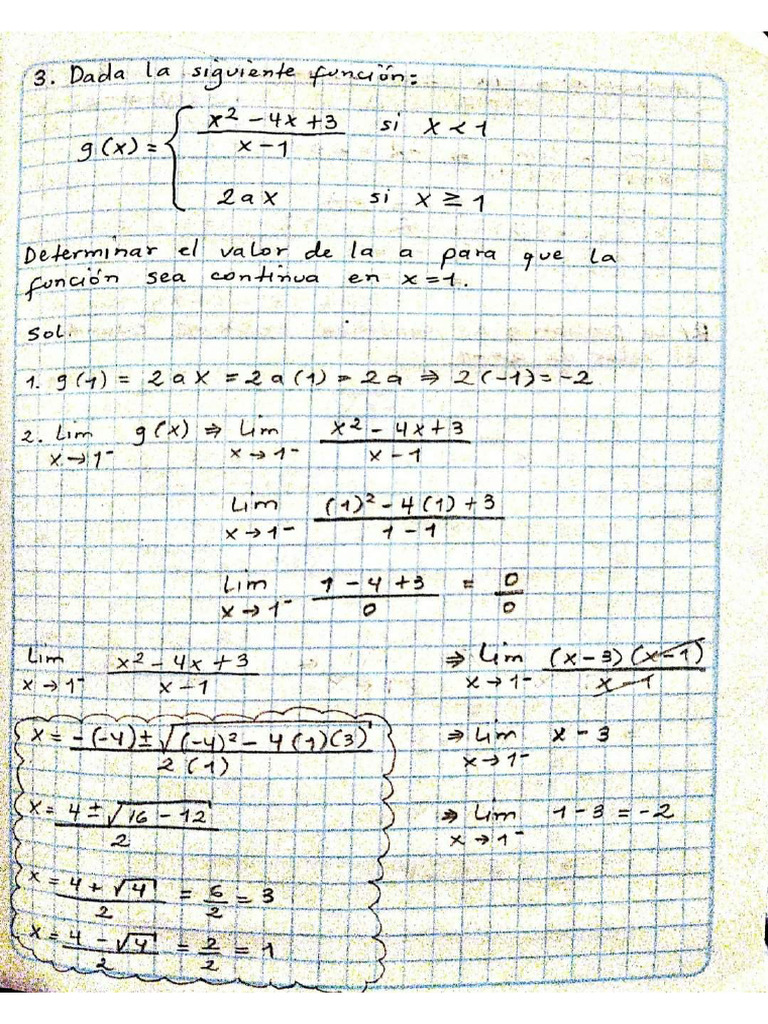 3. Dada la siguiente función:
g(x) = { x² - 4x + 3 / x - 1 si x < 1
2ax si x ≥ 1
Determinar el valor de la a para que la
función sea continua en x = 1.
Sol.
1. g(1) = 2ax = 2a(1) = 2a ⇒ 2(-1) = -2
2. Lim x→1⁻ g(x) ⇒ Lim x→1⁻ x² - 4x + 3 / x - 1
Lim x→1⁻ (1)² - 4(1) + 3 / 1 - 1
Lim x→1⁻ 1 - 4 + 3 / 0 = 0/0
Lim x→1⁻ x² - 4x + 3 / x - 1 ⇒ Lim x→1⁻ (x - 3)(x - 1) / x - 1
x = -(-4) ± √(-4)² - 4(1)(3) / 2(1)
x = 4 ± √16 - 12 / 2
x = 4 + √4 / 2 = 6/2 = 3
x = 4 - √4 / 2 = 2/2 = 1
⇒ Lim x→1⁻ x - 3
⇒ Lim x→1⁻ 1 - 3 = -2